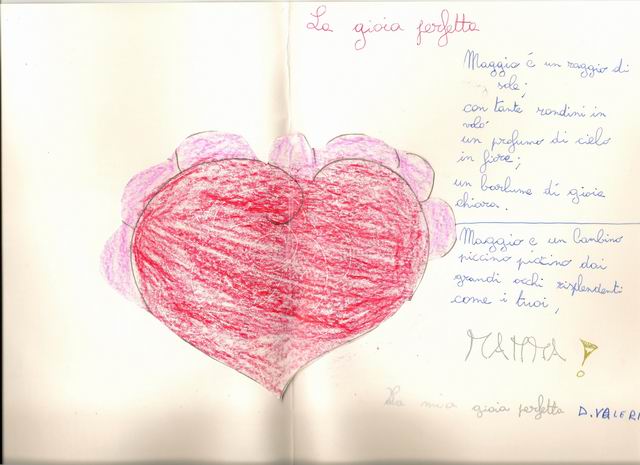 La gioia perfetta
Maggio é un raggio di
sole;
con tante rondini in
volo
un profumo di cielo
in fiore;
un barlume di gioia
chiara.
Maggio è un bambino
piccino piccino dai
grandi occhi risplendenti
come i tuoi,
MAMMA!
La mia gioia perfetta D. VALERI